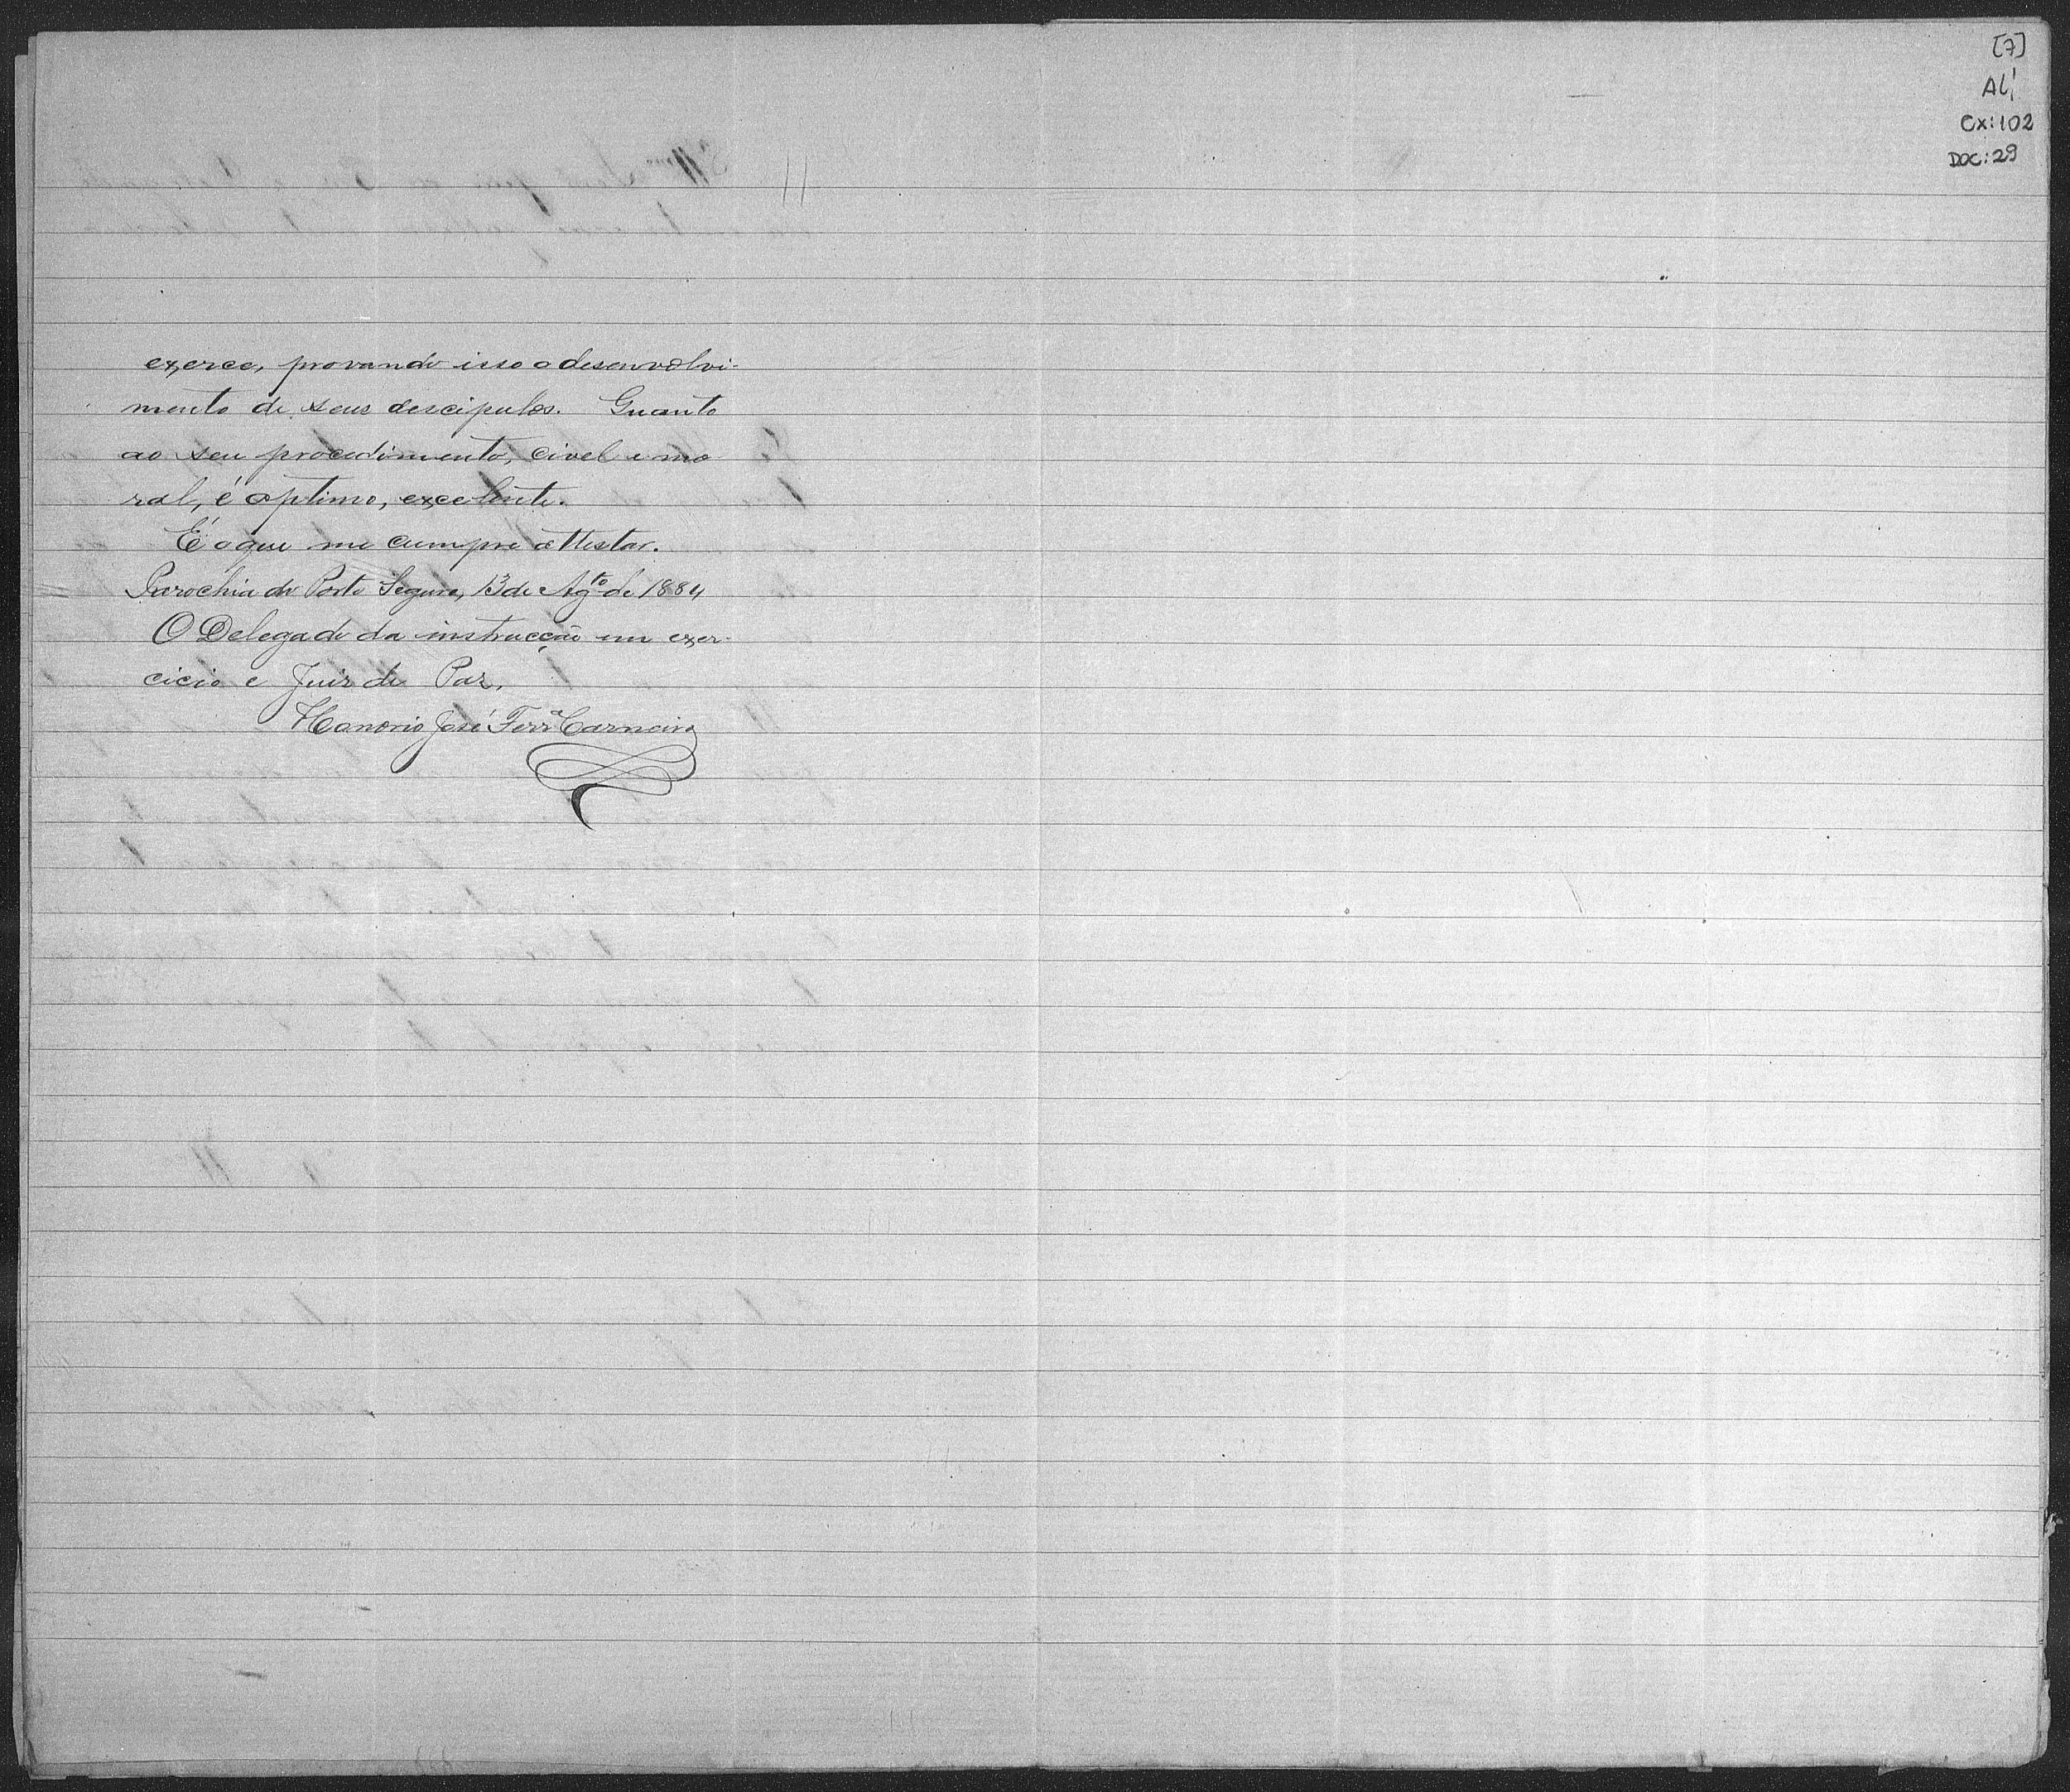 exerce, provando isso o desenvolvi-
mento de seus descipulos. Quanto
ao seu procedimento, civel e mo
ral, é optimo, excelente.
É o que me cumpre attestar.
Parochia de Porto Seguro, 13 de Agto de 1884
O Delegado da instrucção em exer-
cicio e Juiz de Paz,
Honorio José Ferrª Carneiro
[7]
Al.
Cx: 102
DOC: 29